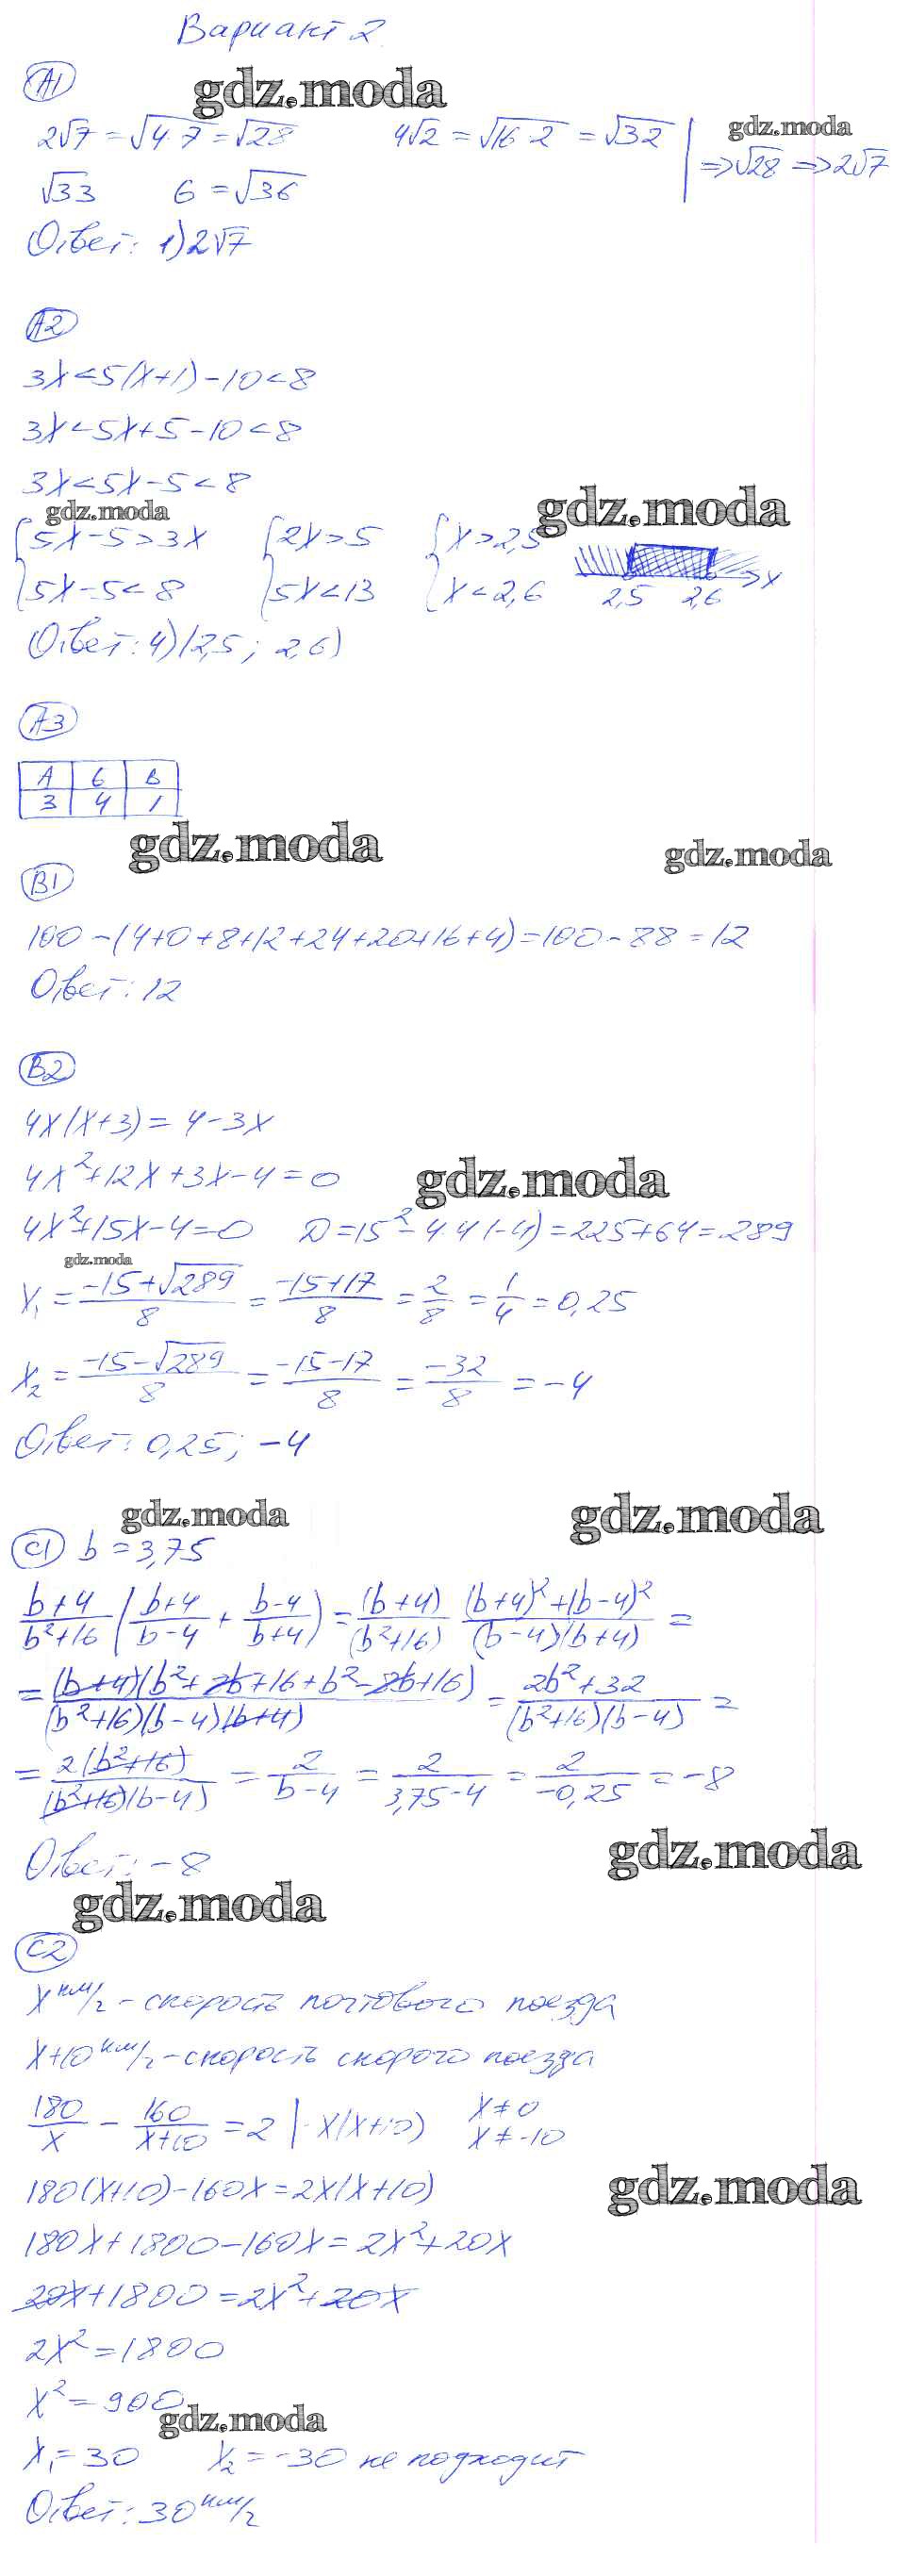 Вариант 2
А1
gdz.moda
2√7 = √4·7 = √28    4√2 = √16·2 = √32
gdz.moda
√33    6 = √36    => √28 => 2√7
Ответ: 1) 2√7
А2
3x<5(x+1)-10<8
3x<5x+5-10<8
3x<5x-5<8
gdz.moda
gdz.moda
{5x-5>3x    {2x>5    {x>2,5
{5x-5<8    {5x<13    {x<2,6    2,5    2,6    x
Ответ: 4) (2,5; 2,6)
А3
А | Б | В
3 | 4 | 1
gdz.moda
gdz.moda
В1
100-(4+0+8+12+24+20+16+4)=100-88=12
Ответ: 12
В2
4x(x+3)=4-3x
4x²+12x+3x-4=0
gdz.moda
4x²+15x-4=0    D=15²-4·4·(-4)=225+64=289
gdz.moda
x₁ = (-15+√289)/8 = (-15+17)/8 = 2/8 = 1/4 = 0,25
x₂ = (-15-√289)/8 = (-15-17)/8 = -32/8 = -4
Ответ: 0,25; -4
gdz.moda
gdz.moda
С1 b = 3,75
(b+4)/(b²+16) ((b+4)/(b-4) + (b-4)/(b+4)) = (b+4)/(b²+16) · ((b+4)²+(b-4)²)/((b-4)(b+4)) =
= (b+4)(b²+8b+16+b²-8b+16)/((b²+16)(b-4)(b+4)) = (2b²+32)/((b²+16)(b-4)) =
= 2(b²+16)/((b²+16)(b-4)) = 2/(b-4) = 2/(3,75-4) = 2/(-0,25) = -8
Ответ: -8
gdz.moda
gdz.moda
С2
x км/ч - скорость почтового поезда
x+10 км/ч - скорость скорого поезда
180/x - 160/(x+10) = 2 |· x(x+10)    x≠0
x≠-10
180(x+10)-160x=2x(x+10)
gdz.moda
180x+1800-160x=2x²+20x
20x+1800=2x²+20x
2x²=1800
x²=900
gdz.moda
x₁=30    x₂=-30 не подходит
Ответ: 30 км/ч